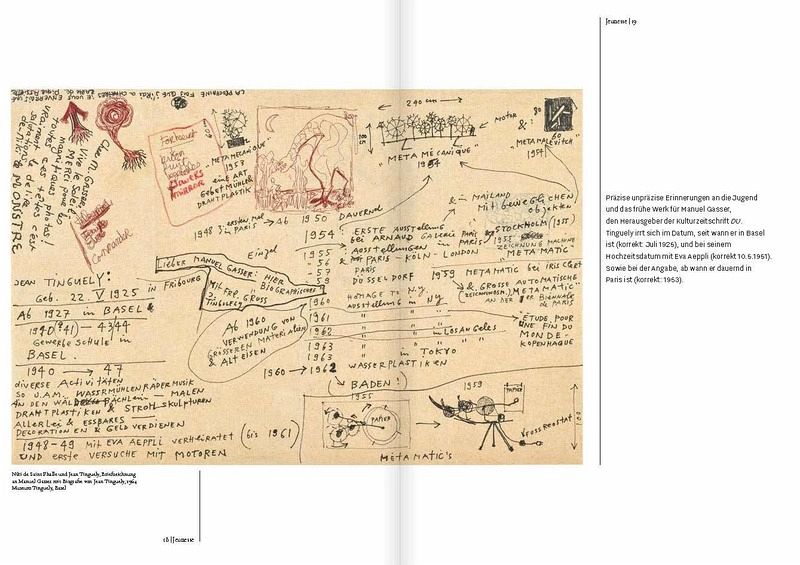 Jeunesse | 19
Präzise unpräzise Erinnerungen an die Jugend
und das frühe Werk für Manuel Gasser,
den Herausgeber der Kulturzeitschrift DU.
Tinguely irrt sich im Datum, seit wann er in Basel
ist (korrekt: Juli 1925), und bei seinem
Hochzeitsdatum mit Eva Aeppli (korrekt 10.5.1951).
Sowie bei der Angabe, ab wann er dauernd in
Paris ist (korrekt: 1953).
LA PROCHAINE FOIS QUE J'IRAI A
Cher M. Gasser
Vive le Soleil
MERCI pour les
magnifiques photos!
toutes ces têtes c'est
vraiment
MONSTRE
"META MECANIQUE"
1953
eine ART
Gebet MÜHLE
DRAHTPLASTIK
240 cm
MOTOR
&
80
"META MÉCANIQUE"
1954
"METAMALEVITCH"
1954
1948 ersten mal in PARIS → 46
1950 DAUERND
Einzel
1954: ERSTE AUSSTELLUNG
bei ARNAUD GALERIE
in PARIS
& MAILAND
Mit beweglichen
objekten
STOCKHOLM (1955)
ZEICHNUNG MASCHINE
"META MATIC"
1955: AUSSTELLUNGEN in
" 56 & PARIS - KÖLN - LONDON
" 57 PARIS
" 58 DÜSSELDORF
1959 METAMATIC bei IRIS CLERT
& GROSSE AUTOMATISCHE
"METAMATIC"
AN DER 1er BIENNALE
de PARIS
LIEBER MANUEL GASSER: HIER
BIOGRAPHISCHES
Mit FREUNDL.
GROSS
TINGUELY
1960 HOMAGE TO N.Y.
AUSSTELLUNG in NY
1961 " "
1962 " " in LOS ANGELES
1963 " "
1963 " " in TOKYO
ÉTUDE POUR
UNE FIN DU
MONDE -
KOPENHAGUE
JEAN TINGUELY:
Geb. 22. V 1925 in FRIBOURG
AB 1927 in BASEL &
1940 (41) — 43/44
GEWERBE SCHULE in
BASEL.
1940 → 47
diverse Activitäten
SO U.A.M. WASSERMÜHLENRÄDERMUSIK
AN DEN WALDBÄCHLEIN — MALEN
DRAHTPLASTIKEN & STROH SKULPTUREN
ALLERLEI & ESSBARES
DECORATIONEN & GELD VERDIENEN
1948-49 Mit EVA AEPPLI VERHEIRATET (bis 1961)
UND erste VERSUCHE MIT MOTOREN
Ab 1960
VERWENDUNG von
GRÖSSEREN MATERIALIEN
& ALT EISEN
1960 → 1962 WASSERPLASTIKEN
(→ BADEN!)
1955
PAPIER
1959
PAPIER
META MATIC'S
Niki de Saint Phalle und Jean Tinguely, Briefzeichnung
an Manuel Gasser mit Biografie von Jean Tinguely, 1964
Museum Tinguely, Basel
18 | Jeunesse